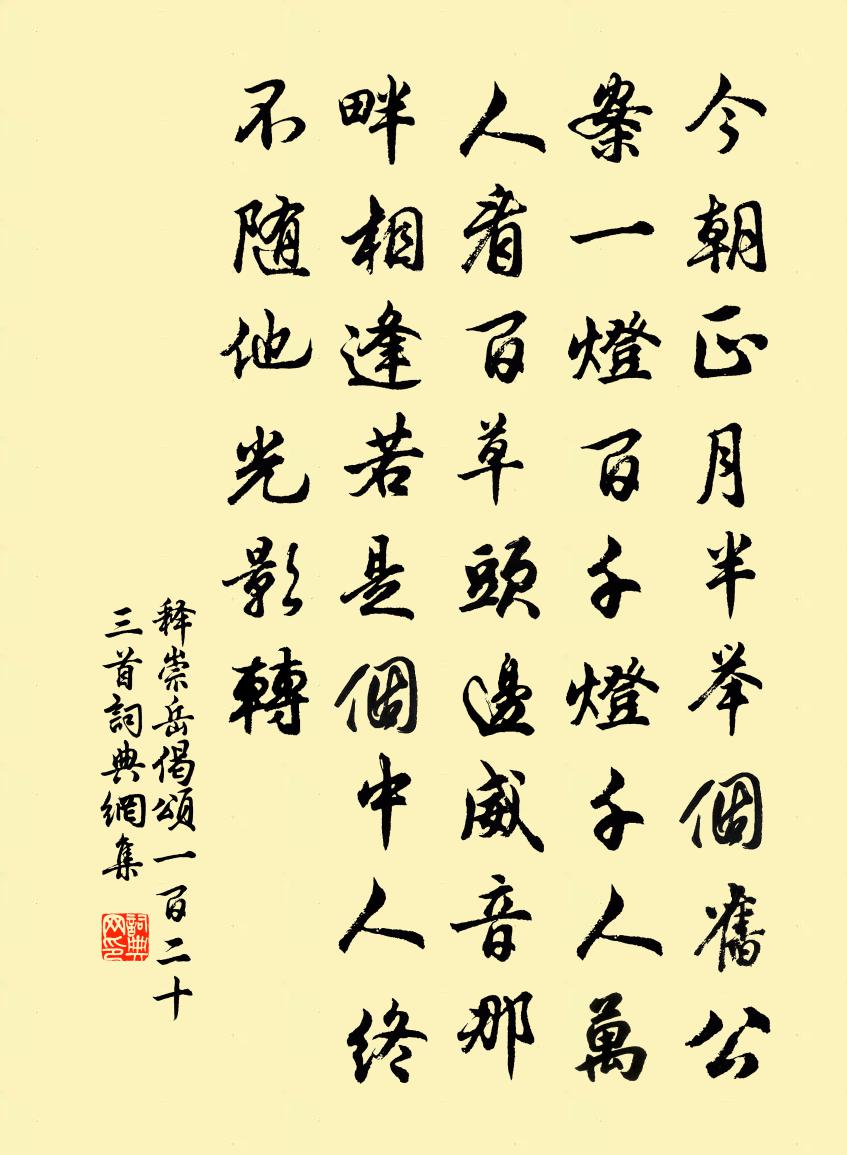 今朝正月半举個舊公
案一燈百千燈千人萬
人看百草頭邊威音那
畔相逢若是個中人终
不随他光影轉
释崇岳偈頌一百二十
三首詞典網集
詞典
网印